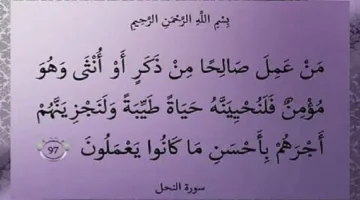 بِسْمِ اللَّهِ الرَّحْمَنِ الرَّحِيمِ
مَنْ عَمِلَ صَالِحًا مِنْ ذَكَرٍ أَوْ أُنْثَى وَهُوَ
مُؤْمِنٌ فَلَنُحْيِيَنَّهُ حَيَاةً طَيِّبَةً وَلَنَجْزِيَنَّهُمْ
أَجْرَهُمْ بِأَحْسَنِ مَا كَانُوا يَعْمَلُونَ 97
سورة النحل